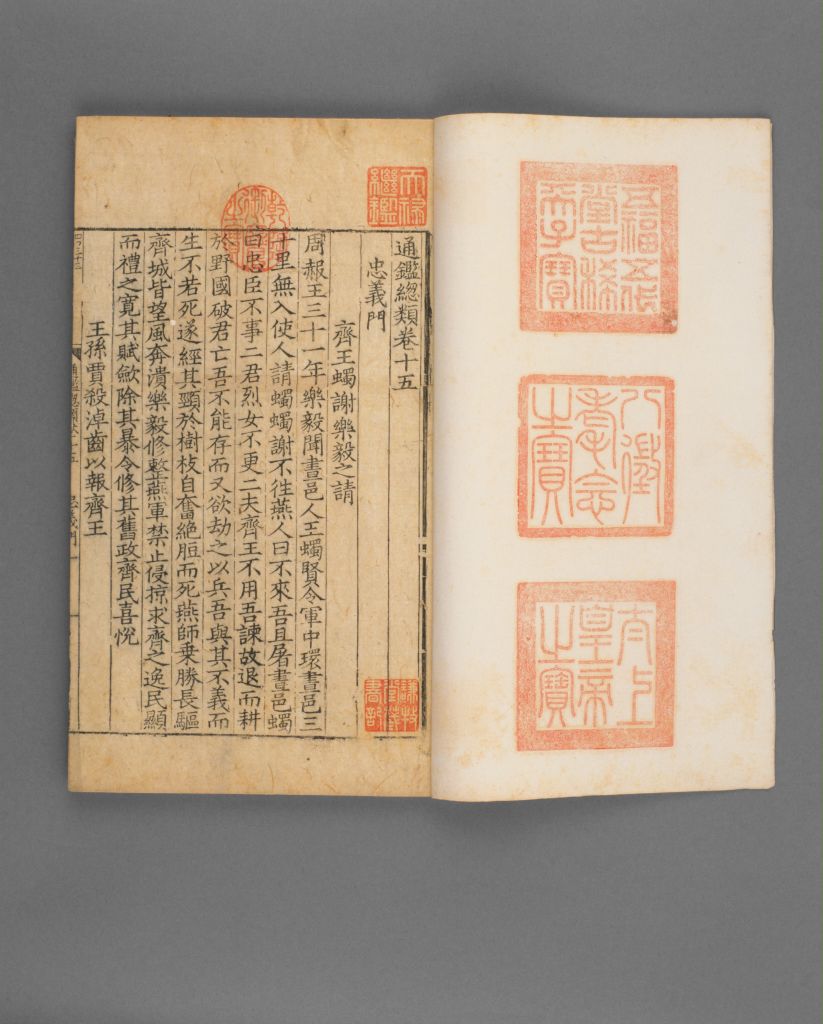 五福五代
堂古稀
天子寶
八徵
耄念
之寶
太上
皇帝
之寶
天祿
繼鑑
謙牧
堂藏
書記
通鑑總類卷十五
忠義門
齊王蠋謝樂毅之請
乾隆御覽之寶
周赧王三十一年樂毅聞晝邑人王蠋賢令軍中環晝邑三
十里無入使人請蠋蠋謝不往燕人曰不來吾且屠晝邑蠋
曰忠臣不事二君烈女不更二夫齊王不用吾諫故退而耕
於野國破君亡吾不能存而又欲劫之以兵吾與其不義而
生不若死遂經其頸於樹枝自奮絶脰而死燕師乗勝長驅
齊城皆望風奔潰樂毅修整燕軍禁止侵掠求齊之逸民顯
而禮之寛其賦斂除其暴令修其舊政齊民喜悅
王孫賈殺淖齒以報齊王